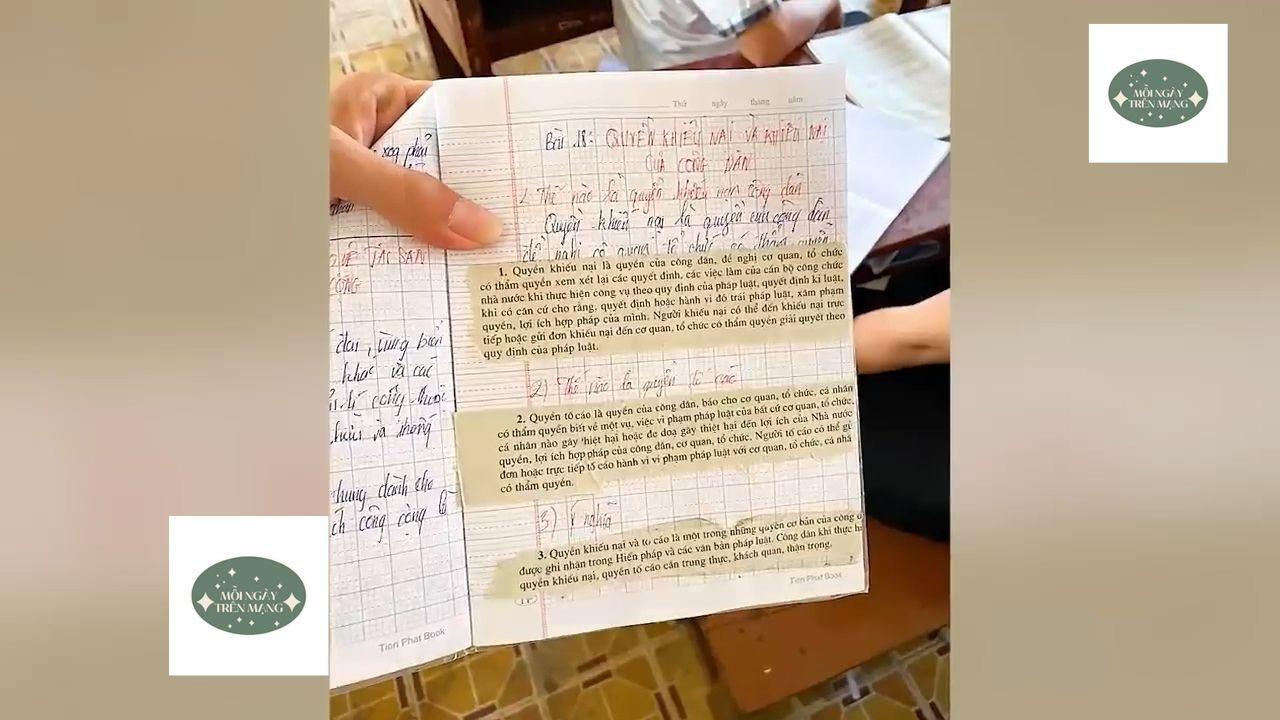 MỖI NGÀY
TRÊN MẠNG
Thứ ngày tháng năm
Bài 18: QUYỀN KHIẾU NẠI VÀ KHIẾU NẠI
CỦA CÔNG DÂN
Thế nào là quyền khiếu nại công dân
Quyền khiếu nại là quyền của công dân
đề nghị cơ quan, tổ chức có thẩm quyền
1. Quyền khiếu nại là quyền của công dân, đề nghị cơ quan, tổ chức
có thẩm quyền xem xét lại các quyết định, các việc làm của cán bộ công chức
nhà nước khi thực hiện công vụ theo quy định của pháp luật, quyết định kỉ luật,
khi có căn cứ cho rằng, quyết định hoặc hành vi đó trái pháp luật, xâm phạm
quyền, lợi ích hợp pháp của mình. Người khiếu nại có thể đến khiếu nại trực
tiếp hoặc gửi đơn khiếu nại đến cơ quan, tổ chức có thẩm quyền giải quyết theo
quy định của pháp luật.
2) Thế nào là quyền tố cáo
2. Quyền tố cáo là quyền của công dân, báo cho cơ quan, tổ chức, cá nhân
có thẩm quyền biết về một vụ, việc vi phạm pháp luật của bất cứ cơ quan, tổ chức,
cá nhân nào gây thiệt hại hoặc đe doạ gây thiệt hại đến lợi ích của Nhà nước
quyền, lợi ích hợp pháp của công dân, cơ quan, tổ chức. Người tố cáo có thể gử
đơn hoặc trực tiếp tố cáo hành vi vi phạm pháp luật với cơ quan, tổ chức, cá nhâ
có thẩm quyền.
3) Ý nghĩa
3. Quyền khiếu nại và tố cáo là một trong những quyền cơ bản của công
được ghi nhận trong Hiến pháp và các văn bản pháp luật. Công dân khi thực hi
quyền khiếu nại, quyền tố cáo cần trung thực, khách quan, thận trọng.
Tien Phat Book
xog phải
VỀ TÀI SẢN
CÔNG
đai, vùng biển
khác và các
công thuộc
và thống
chung dành cho
ích công cộng là
Tien Phat Book
MỖI NGÀY
TRÊN MẠNG